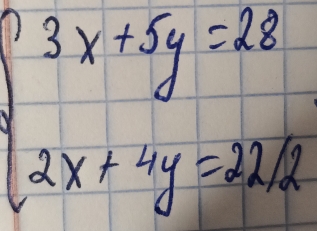 3x+5y=28
2x+4y=22/2